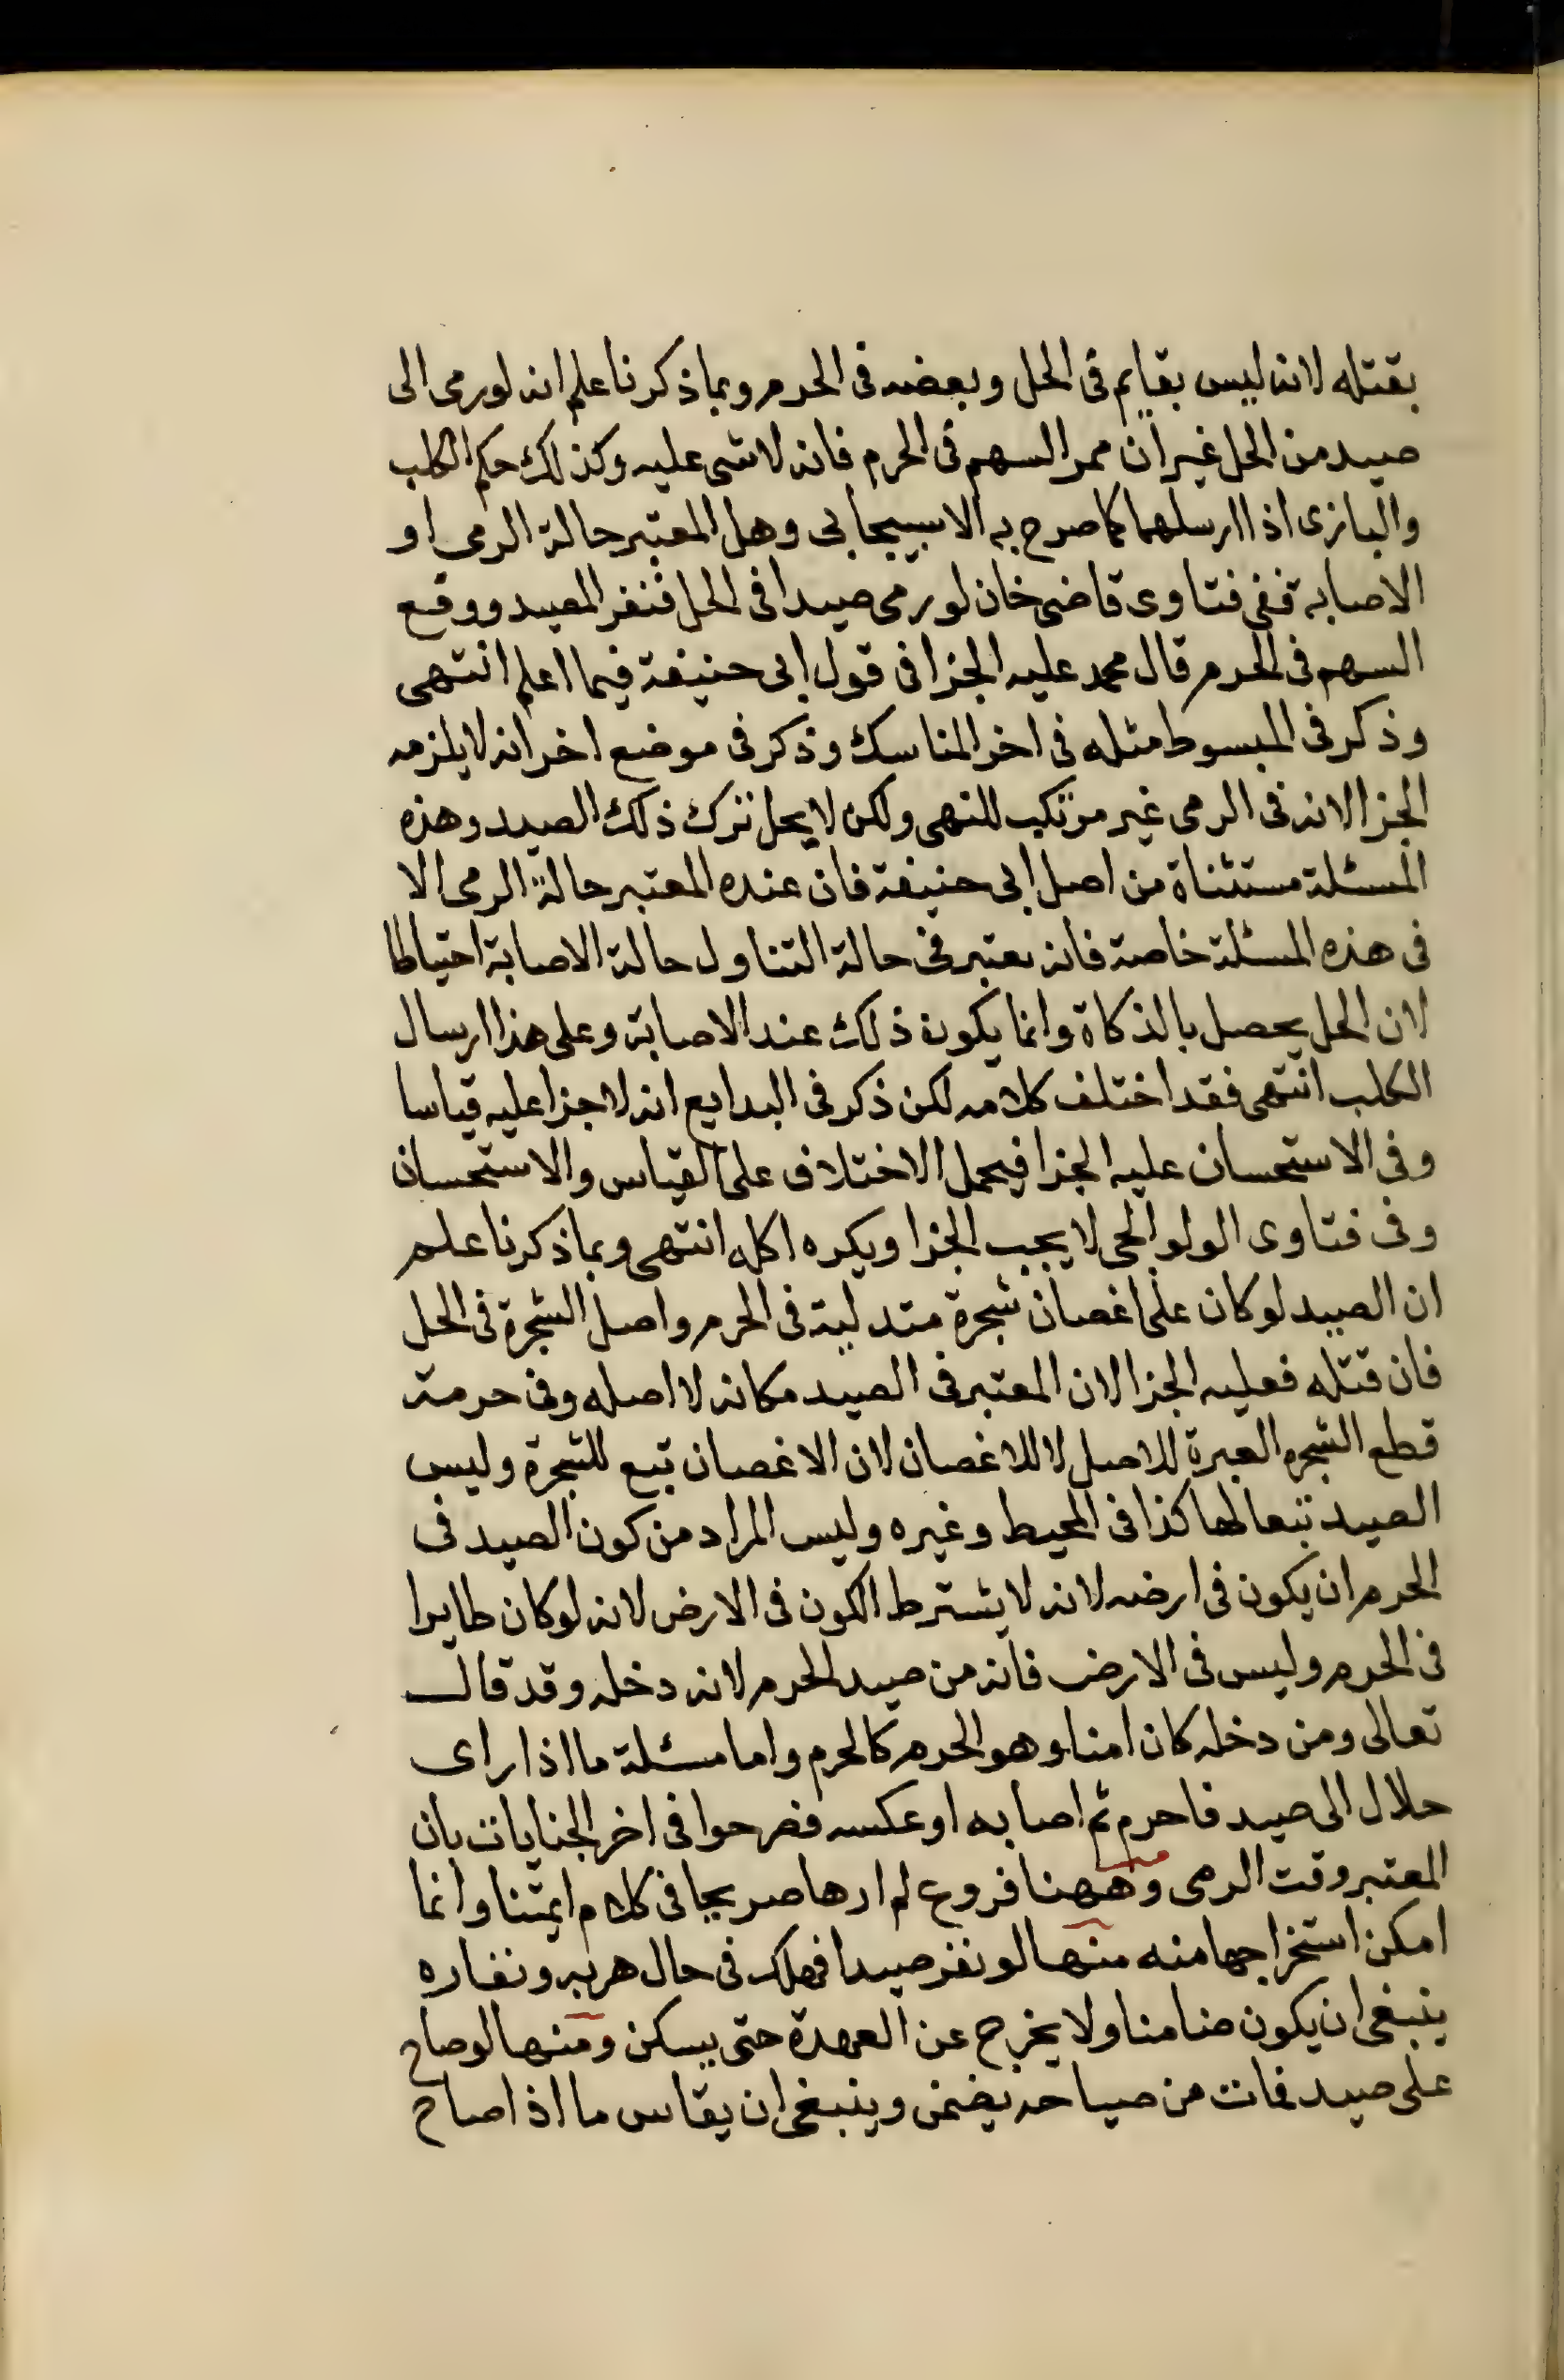 بقتله لانه ليس بقايم فى الحل وبعضه فى الحرم وبماذكرنا علم انه لو رمى الى
صيد من الحل غير ان ممر السهم فى الحرم فانه لا شى عليه وكذلك حكم الكلب
والبازى اذا ارسلهما كما صرح به الاسبيجابى وهل المعتبر حالة الرمى او
الاصابة ففى فتاوى قاضى خان لو رمى صيدا فى الحل فنفر الصيد ووقع
السهم فى الحرم قال محمد عليه الجزا فى قول ابى حنيفة فيما اعلم انتهى
وذكر فى المبسوط مثله فى اخر المناسك وذكر فى موضع اخر انه لا يلزمه
الجزا لانه فى الرمى غير مرتكب للنهى ولكن لا يحل ترك ذلك الصيد وهذه
المسئلة مستثناة من اصل ابى حنيفة فان عنده المعتبر حالة الرمى الا
فى هذه المسئلة خاصة فانه يعتبر فى حالة التناول حالة الاصابة احتياطا
لان الحل يحصل بالذكاة وانما يكون ذلك عند الاصابة وعلى هذا ارسال
الكلب انتهى فقد اختلف كلامه لكن ذكر فى البدايع انه لا جزا عليه قياسا
وفى الاستحسان عليه الجزا فيحمل الاختلاف على القياس والاستحسان
وفى فتاوى الولوالجى لا يجب الجزا ويكره اكله انتهى وبماذكرنا علم
ان الصيد لو كان على اغصان شجرة متدلية فى الحرم واصل الشجرة فى الحل
فان قتله فعليه الجزا لان المعتبر فى الصيد مكانه لا اصله وفى حرمة
قطع الشجرة العبرة للاصل لا للاغصان لان الاغصان تبع للشجرة وليس
الصيد تبعا لها كذا فى المحيط وغيره وليس المراد من كون الصيد فى
الحرم ان يكون فى ارضه لانه لا يشترط الكون فى الارض لانه لو كان طايرا
فى الحرم وليس فى الارض فانه من صيد الحرم لانه دخله وقد قال
تعالى ومن دخله كان امنا وهو الحرم كالحرم واما مسئلة ما اذا راى
حلال الى صيد فاحرم ثم اصابه او عكسه فصرحوا فى اخر الجنايات بان
المعتبر وقت الرمى وههنا فروع لم ارها صريحا فى كلام ايمتنا وانما
امكن استخراجها منه منها لو نفر صيدا فهلك فى حال هربه ونفاره
ينبغى ان يكون ضامنا ولا يخرج عن العهدة حتى يسكن ومنها لو صاح
على صيد فمات من صياحه يضمن وينبغى ان يقاس ما اذا صاح